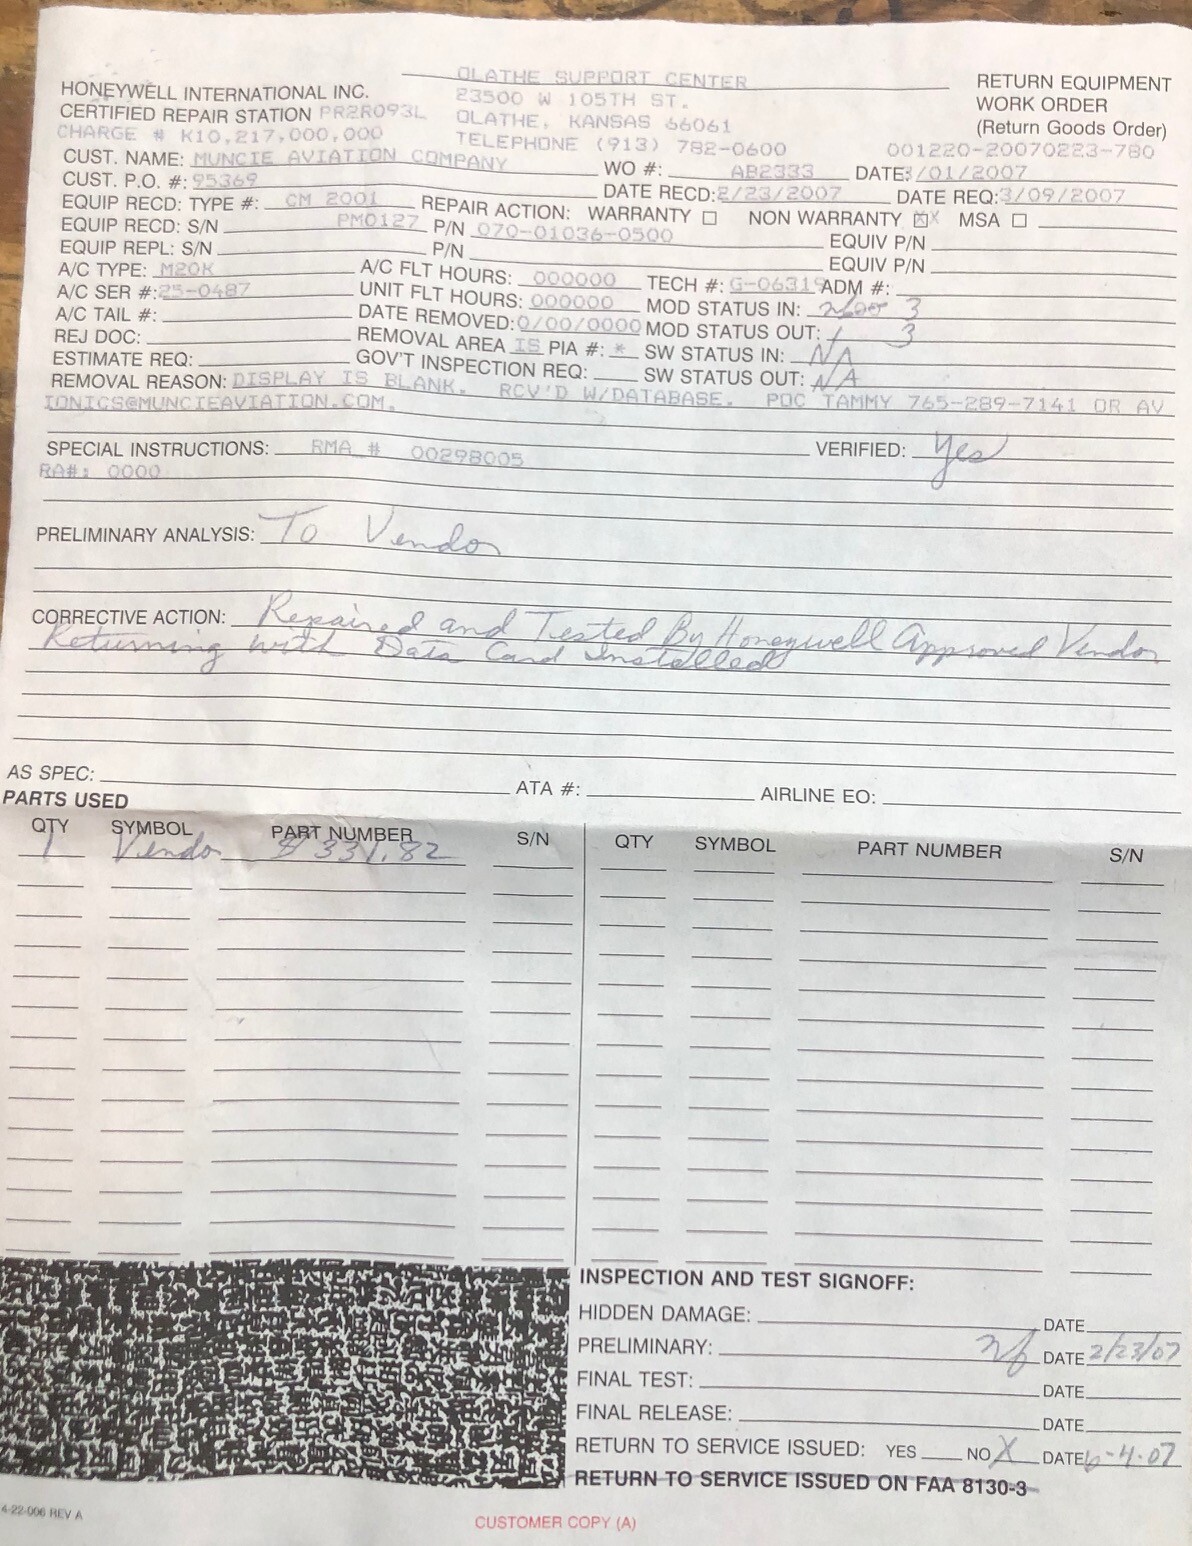 OLATHE SUPPORT CENTER
RETURN EQUIPMENT
HONEYWELL INTERNATIONAL INC. 23500 W 105TH ST. WORK ORDER
CERTIFIED REPAIR STATION PR2R093L OLATHE, KANSAS 66061 (Return Goods Order)
CHARGE # K10,217,000,000 TELEPHONE (913) 782-0600 001220-20070223-780
CUST. NAME: MUNCIE AVIATION COMPANY WO #: AB2333 DATE: 3/01/2007
CUST. P.O. #: 95369 DATE RECD: 2/23/2007 DATE REQ: 3/09/2007
EQUIP RECD: TYPE #: CM 2001 REPAIR ACTION: WARRANTY ☐ NON WARRANTY ☒ X MSA ☐
EQUIP RECD: S/N PM0127 P/N 070-01036-0500 EQUIV P/N
EQUIP REPL: S/N P/N EQUIV P/N
A/C TYPE: M20K A/C FLT HOURS: 000000 TECH #: G-06319 ADM #:
A/C SER #: 25-0487 UNIT FLT HOURS: 000000 MOD STATUS IN: 3
A/C TAIL #: DATE REMOVED: 0/00/0000 MOD STATUS OUT: 3
REJ DOC: REMOVAL AREA IS PIA #: * SW STATUS IN: NA
ESTIMATE REQ: GOV'T INSPECTION REQ: SW STATUS OUT: NA
REMOVAL REASON: DISPLAY IS BLANK. RCV'D W/DATABASE. POC TAMMY 765-289-7141 OR AV
IONICS@MUNCIEAVIATION.COM.
SPECIAL INSTRUCTIONS: RMA # 00298005 VERIFIED: Yes
RA#: 0000
PRELIMINARY ANALYSIS: To Vendor
CORRECTIVE ACTION: Repaired and Tested By Honeywell Approved Vendor
Returning with Data Card Installed
AS SPEC: ATA #: AIRLINE EO:
PARTS USED
QTY SYMBOL PART NUMBER S/N QTY SYMBOL PART NUMBER S/N
1 Vendor $331.82
INSPECTION AND TEST SIGNOFF:
HIDDEN DAMAGE: DATE
PRELIMINARY: DATE 2/23/07
FINAL TEST: DATE
FINAL RELEASE: DATE
RETURN TO SERVICE ISSUED: YES NO X DATE 6-4-07
RETURN TO SERVICE ISSUED ON FAA 8130-3
4-22-006 REV A
CUSTOMER COPY (A)